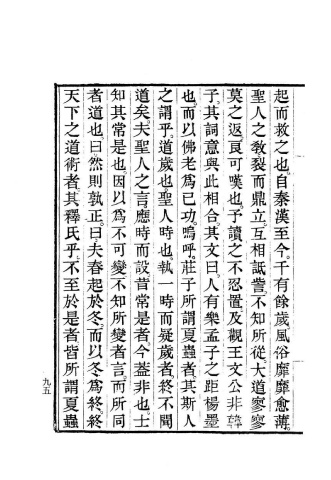 起而救之也。自秦漢至今。千有餘歲風俗靡靡愈薄。
聖人之敎裂而鼎立互相詆訾不知所從大道寥寥
莫之返。良可嘆也。予讀之不忍置及觀王文公非韓
子。其詞意與此相合其文曰。人有樂孟子之距楊墨
也。而以佛老爲己功。嗚呼。莊子所謂夏蟲者。其斯人
之謂乎。道歲也聖人時也。執一時而疑歲者。終不聞
道矣。夫聖人之言應時而設昔常是者。今蓋非也。士
知其常是也。因以爲不可變不知所變者言。而所同
者道也。曰然則孰正。曰夫春起於冬。而以冬爲終終
天下之道術者。其釋氏乎。不至於是者皆所謂夏蟲
九五